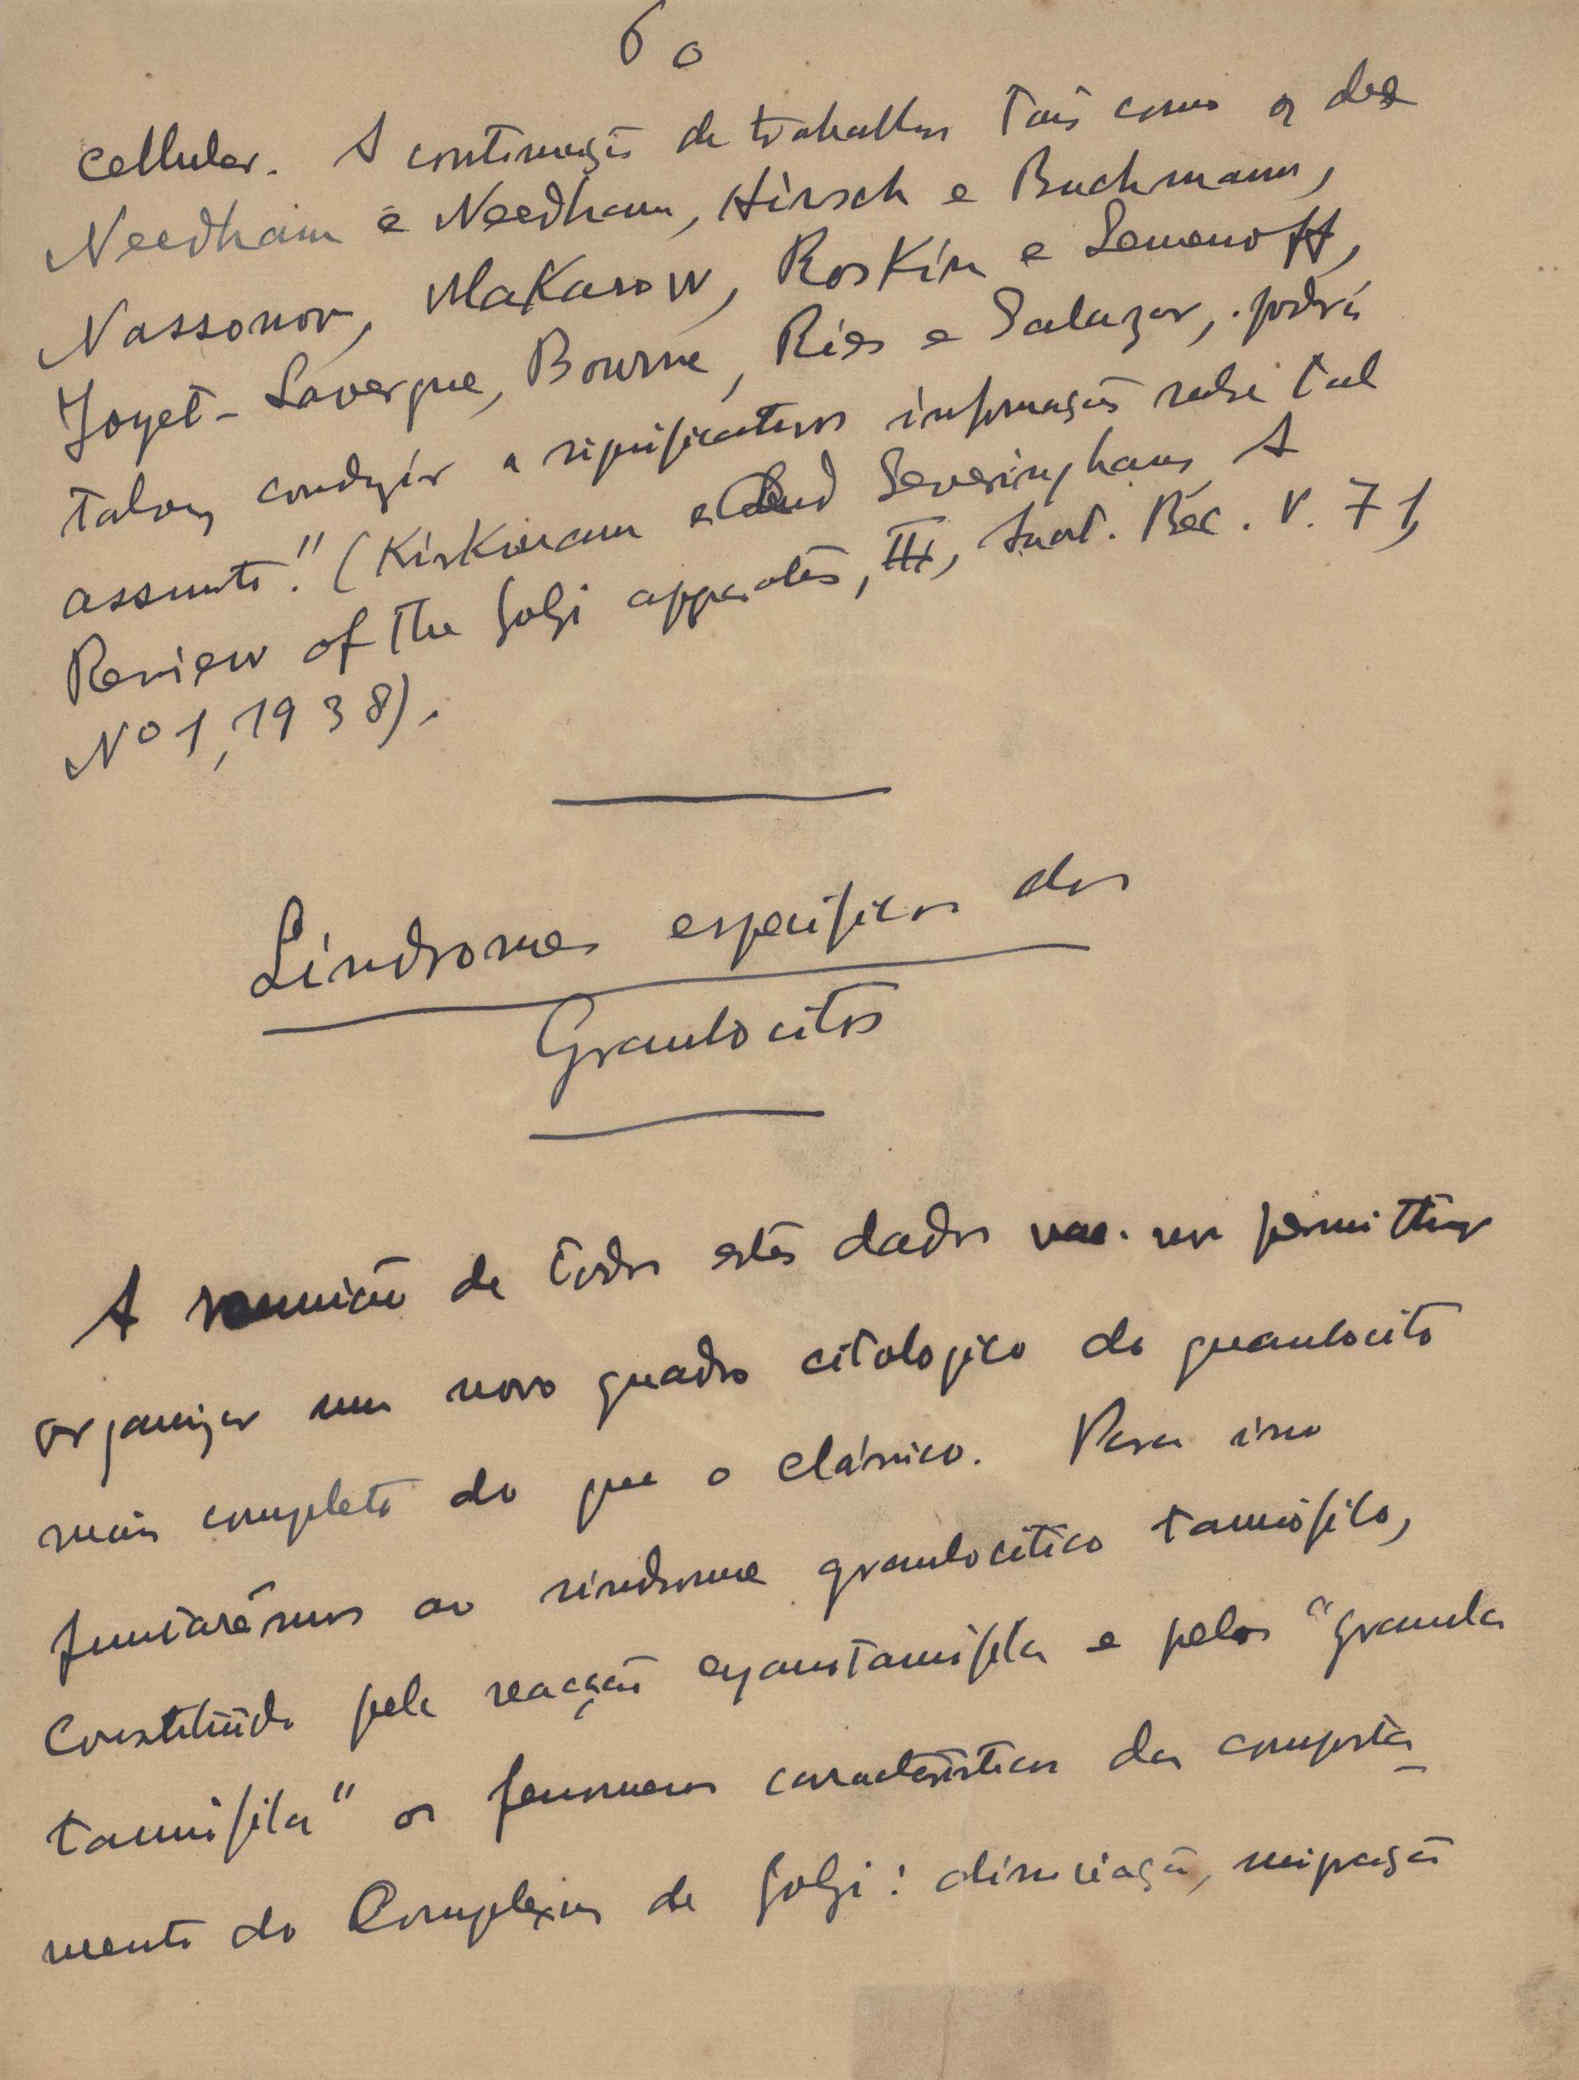 60
cellular. A continuação de trabalhos tais como os de
Needham e Needham, Hirsch e Buchmann,
Nassonov, Makarow, Roskin e Semenoff,
Joyet-Lavergne, Bourne, Ries e Salazar, podrá
talvez conduzir a significativas informações sobre tal
assunto." (Kirkman and Severinghaus A
Review of the Golgi apparatus, III, Anat. Rec. V. 71,
Nº 1, 1938).
Síndromes especificos dos
Granulocitos
A reunião de todos estes dados vae-nos permittir
organizar um novo quadro citologico do granulocito
mais completo do que o clássico. Para isso
juntarêmos ao sindrome granulocitico taniófilo,
constituido pela reacção cyanotaniofila e pelos "granula
taniofila" os fenomenos caracteristicos do comporta-
mento do Complexus de Golgi: dissociação, migração